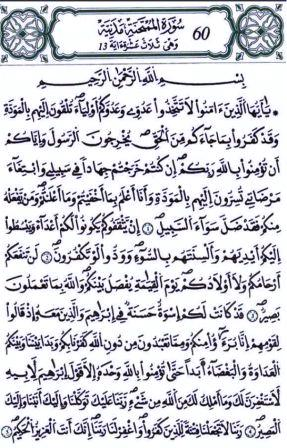 سُورَةُ الْمُمْتَحِنَةِ مَدَنِيَّة
60
وَهْيَ ثَلَاثَ عَشْرَةَ ءَايَةً 13
بِسْمِ اللَّهِ الرَّحْمَٰنِ الرَّحِيمِ
يَٰٓأَيُّهَا الذِينَ ءَامَنُوا لَا تَتَّخِذُوا عَدُوِّي وَعَدُوَّكُمْ أَوْلِيَآءَ تُلْقُونَ إِلَيْهِم بِالْمَوَدَّةِ
وَقَدْ كَفَرُوا بِمَا جَآءَكُم مِّنَ الْحَقِّ يُخْرِجُونَ الرَّسُولَ وَإِيَّاكُمْ
أَن تُومِنُوا بِاللَّهِ رَبِّكُمْ إِن كُنتُمْ خَرَجْتُمْ جِهَٰدًا فِي سَبِيلِي وَابْتِغَآءَ
مَرْضَاتِي تُسِرُّونَ إِلَيْهِم بِالْمَوَدَّةِ وَأَنَا أَعْلَمُ بِمَا أَخْفَيْتُمْ وَمَا أَعْلَنتُمْ وَمَن يَفْعَلْهُ
مِنكُمْ فَقَد ضَّلَّ سَوَآءَ السَّبِيلِ ١ إِن يَثْقَفُوكُمْ يَكُونُوا لَكُمْ أَعْدَآءً وَيَبْسُطُوا
إِلَيْكُمْ أَيْدِيَهُمْ وَأَلْسِنَتَهُم بِالسُّوءِ وَوَدُّوا لَوْ تَكْفُرُونَ ٢ لَن تَنفَعَكُمْ
أَرْحَامُكُمْ وَلَا أَوْلَٰدُكُمْ يَوْمَ الْقِيَٰمَةِ يُفْصَلُ بَيْنَكُمْ وَاللَّهُ بِمَا تَعْمَلُونَ
بَصِيرٌ ٣ قَدْ كَانَتْ لَكُمْ إِسْوَةٌ حَسَنَةٌ فِي إِبْرَٰهِيمَ وَالذِينَ مَعَهُ إِذْ قَالُوا
لِقَوْمِهِمْ إِنَّا بُرَءَٰٓؤُا مِنكُمْ وَمِمَّا تَعْبُدُونَ مِن دُونِ اللَّهِ كَفَرْنَا بِكُمْ وَبَدَا بَيْنَنَا وَبَيْنَكُمُ
الْعَدَٰوَةُ وَالْبَغْضَآءُ أَبَدًا حَتَّىٰ تُومِنُوا بِاللَّهِ وَحْدَهُ إِلَّا قَوْلَ إِبْرَٰهِيمَ لِأَبِيهِ
لَأَسْتَغْفِرَنَّ لَكَ وَمَا أَمْلِكُ لَكَ مِنَ اللَّهِ مِن شَيْءٍ رَّبَّنَا عَلَيْكَ تَوَكَّلْنَا وَإِلَيْكَ أَنَبْنَا وَإِلَيْكَ
الْمَصِيرُ ٤ رَبَّنَا لَا تَجْعَلْنَا فِتْنَةً لِّلذِينَ كَفَرُوا وَاغْفِرْ لَنَا رَبَّنَا إِنَّكَ أَنتَ الْعَزِيزُ الْحَكِيمُ ٥